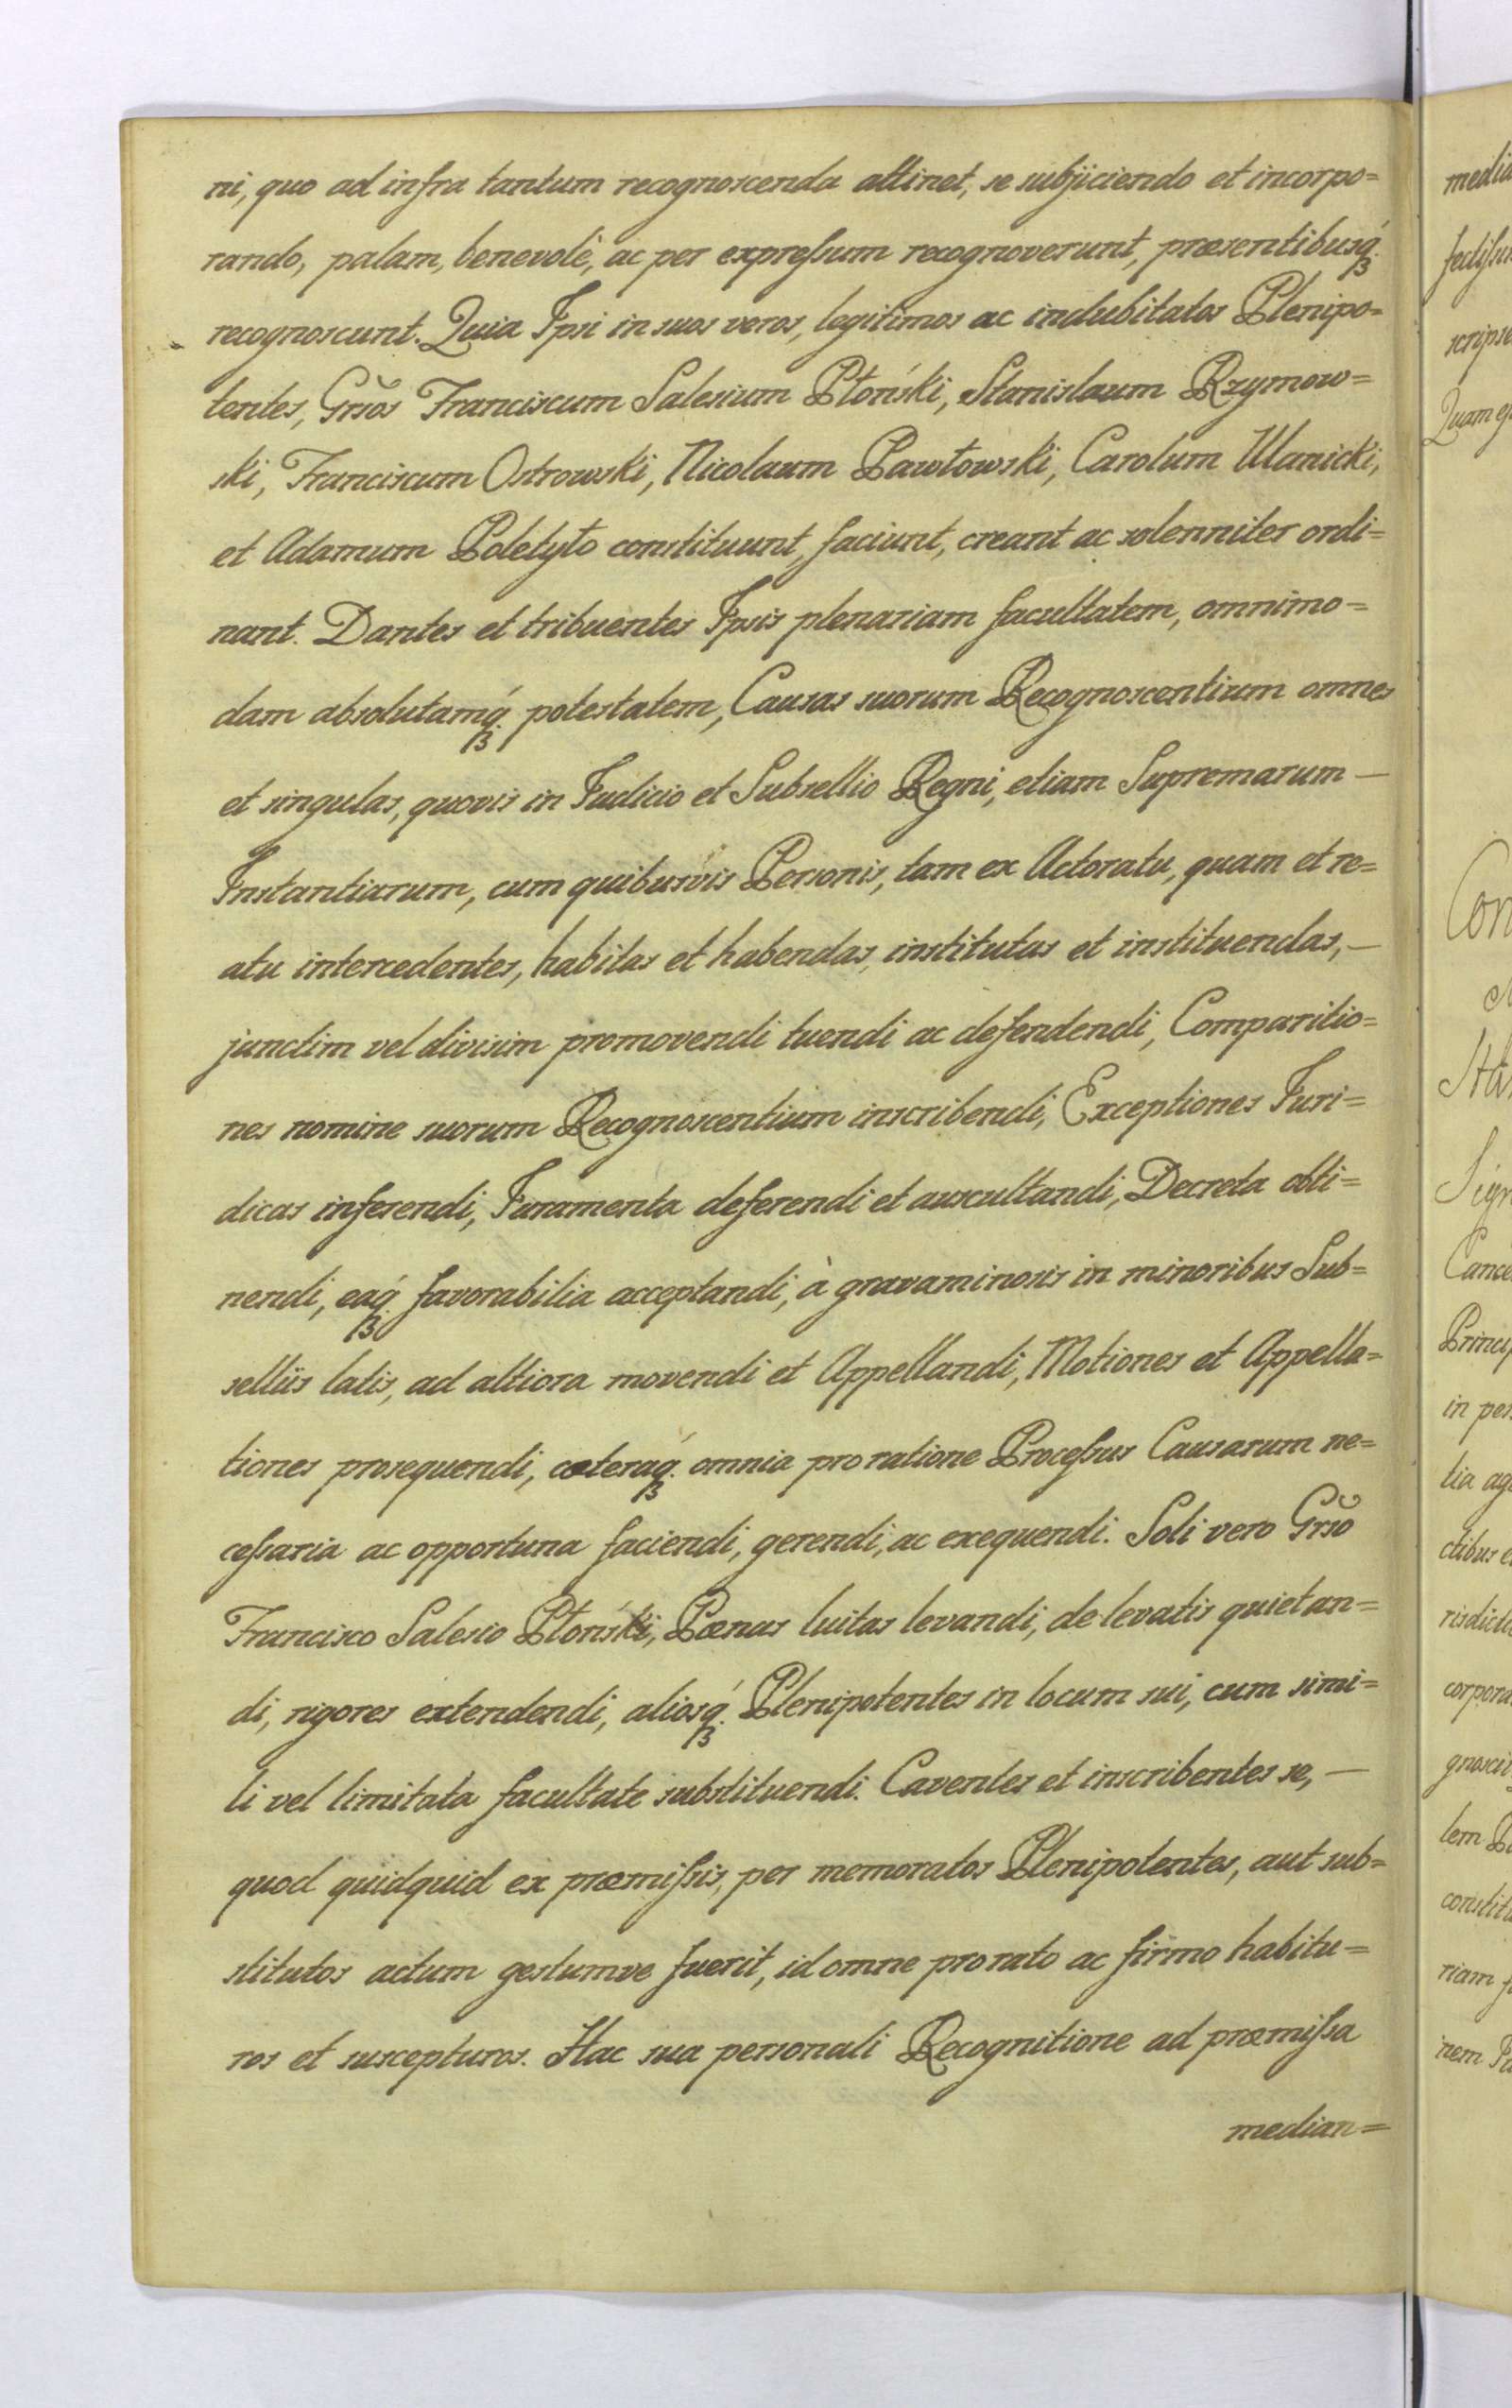 ni, quo ad infra tantum recognoscenda attinet, se subjiciendo et incorpo=
rando, palam, benevolè, ac per expreſsum recognoverunt, præsentibusq́ꝫ
recognoscunt. Quia Ipsi in suos veros, legitimos ac indubitatos Plenipo=
tentes, Grſos Franciscum Salesium Płoński, Stanislaum Rzymow=
ski, Franciscum Ostrowski, Nicolaum Pawłowski, Carolum Ulanicki,
et Adamum Poletyło constituunt, faciunt, creant ac solenniter ordi=
nant. Dantes et tribuentes Ipsis plenariam facultatem, omnimo=
dam absolutamq́ꝫ potestatem, Causas suorum Recognoscentium omnes
et singulas, quovis in Judicio et Subsellio Regni, etiam Supremarum —
Instantiarum, cum quibusvis Personis, tam ex Actoratu, quam et re=
atu intercedentes, habitas et habendas, institutas et instituendas, —
junctim vel divisim promovendi tuendi ac defendendi, Comparitio=
nes nomine suorum Recognoscentium inscribendi, Exceptiones Juri=
dicas inferendi, Juramenta deferendi et auscultandi, Decreta obti=
nendi, eaq́ꝫ favorabilia acceptandi, à gravaminosis in minoribus Sub=
selliis latis, ad altiora movendi et Appellandi, Motiones et Appella=
tiones prosequendi, cæteraq́ꝫ omnia pro ratione Proceſsus Causarum ne=
ceſsaria ac opportuna faciendi, gerendi, ac exequendi. Soli vero Grſo
Francisco Salesio Płoński, Pœnas luitas levandi, de levatis quietan=
di, rigores extendendi, aliosq́ꝫ Plenipotentes in locum sui, cum simi=
li vel limitata facultate substituendi. Caventes et inscribentes se, —
quod quidquid ex præmiſsis, per memoratos Plenipotentes, aut sub=
stitutos actum gestumve fuerit, id omne pro rato ac firmo habitu=
ros et suscepturos. Hac sua personali Recognitione ad præmiſsa
median=